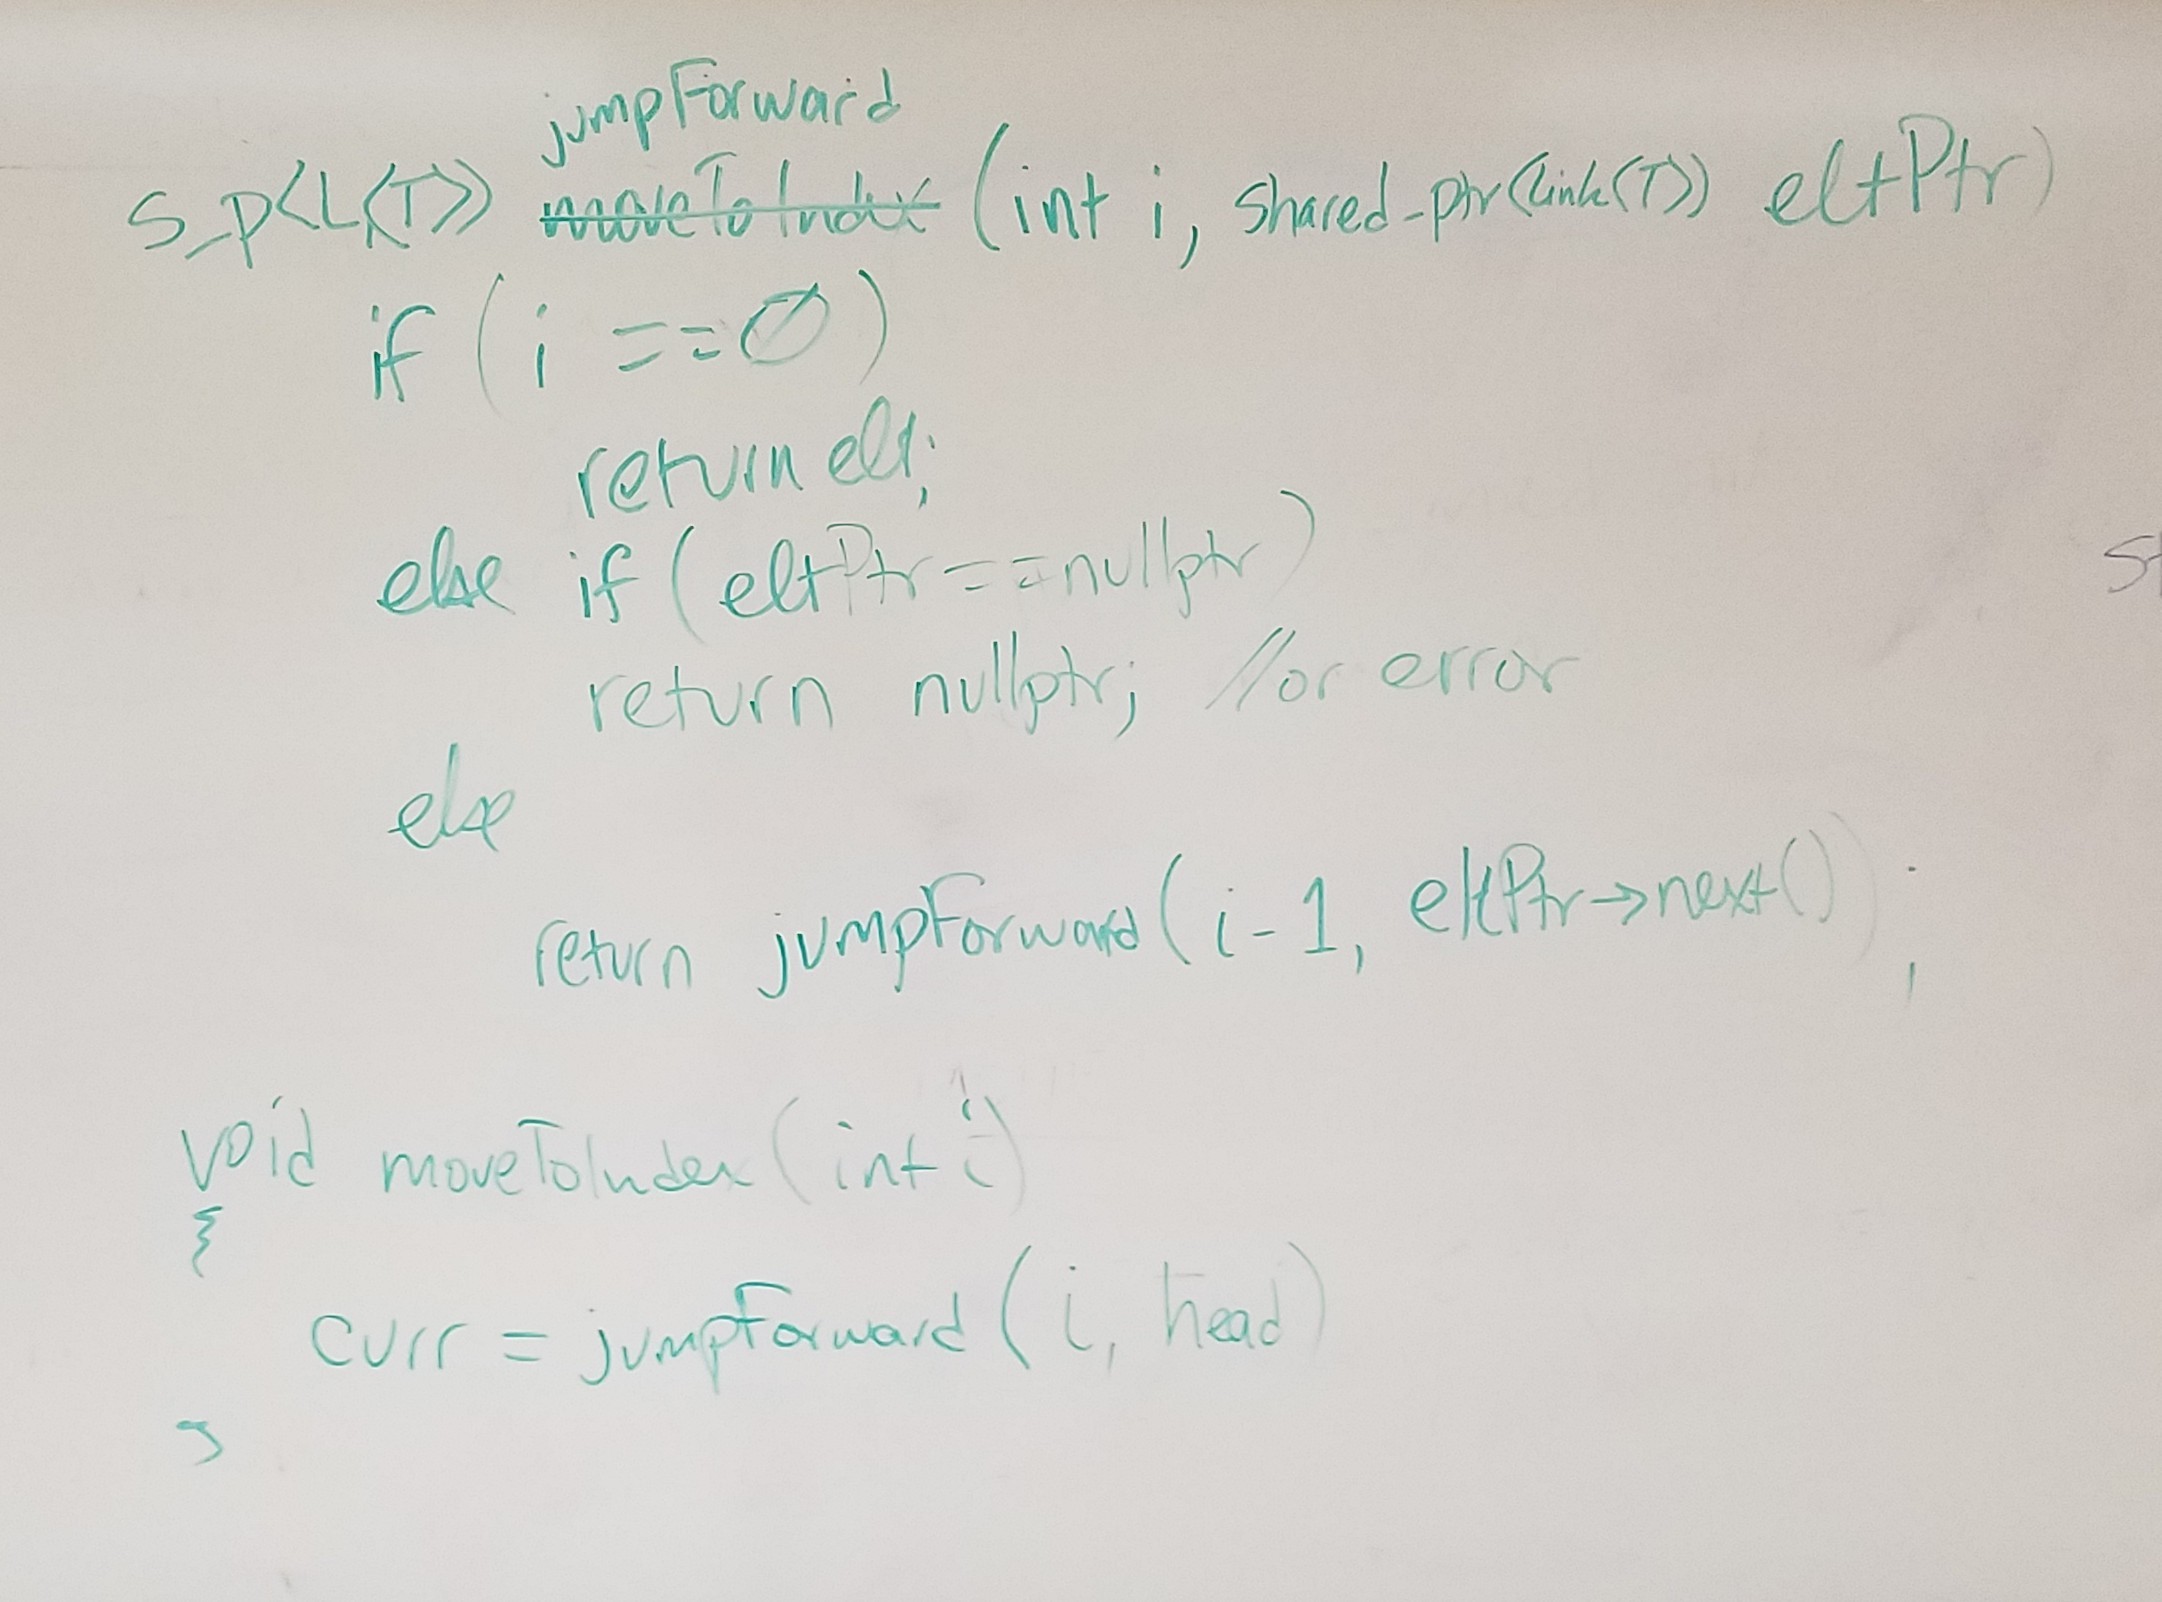 jumpForward
S_p<L<T>> moveToIndex (int i, shared_ptr<Link<T>> eltPtr)
if ( i == 0 )
return elt;
else if ( eltPtr == nullptr )
return nullptr; //or error
else
return jumpForward ( i-1, eltPtr->next() ) ;
void moveToIndex ( int i )
{
curr = jumpForward ( i, head )
}